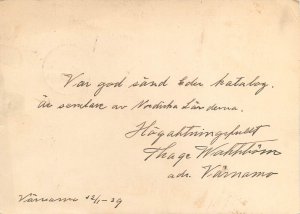 Var god sänd Eder katalog.
är samlare av Nordiska Länderna.
Högaktningsfullt
Thage
adr. Värnamo
Värnamo 12/1-39